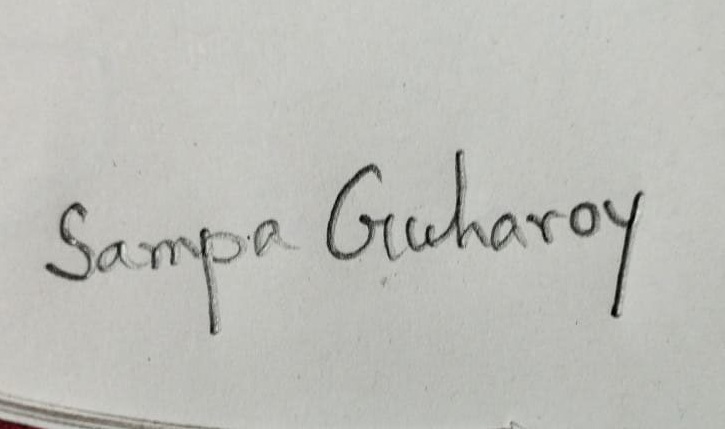 Sampa Guharoy